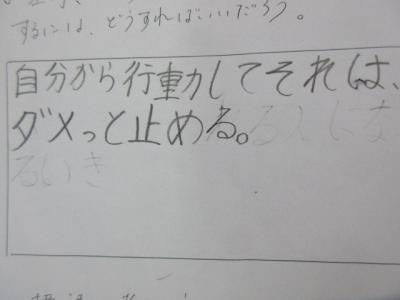 するには、どうすればいいだろう。
自分から行動してそれは、
ダメっと止める。る人にな
るいき